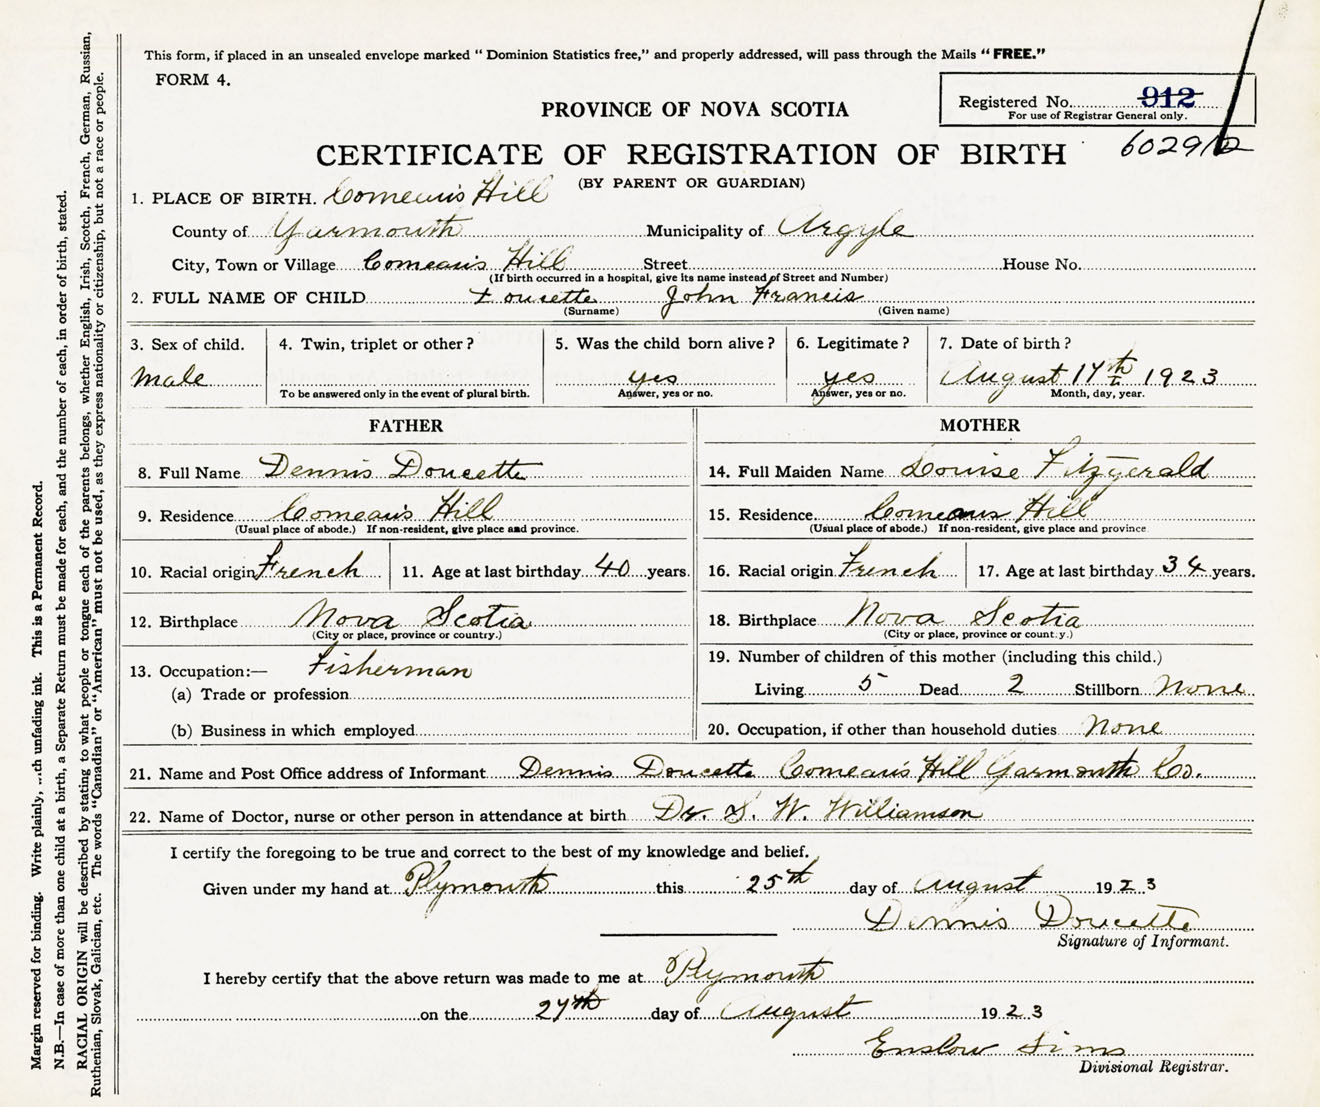 This form, if placed in an unsealed envelope marked “Dominion Statistics free,” and properly addressed, will pass through the Mails “FREE.”
FORM 4.
Registered No. 912
For use of Registrar General only.
PROVINCE OF NOVA SCOTIA
602912
CERTIFICATE OF REGISTRATION OF BIRTH
(BY PARENT OR GUARDIAN)
1. PLACE OF BIRTH. Comeau's Hill
County of Yarmouth Municipality of Argyle
City, Town or Village Comeau's Hill Street House No.
(If birth occurred in a hospital, give its name instead of Street and Number)
2. FULL NAME OF CHILD Doucette John Francis
(Surname) (Given name)
3. Sex of child. 4. Twin, triplet or other? 5. Was the child born alive? 6. Legitimate? 7. Date of birth?
Male yes yes August 17th 1923
To be answered only in the event of plural birth. Answer, yes or no. Answer, yes or no. Month, day, year.
FATHER MOTHER
8. Full Name Dennis Doucette 14. Full Maiden Name Louise Fitzgerald
9. Residence Comeau's Hill 15. Residence Comeaus Hill
(Usual place of abode.) If non-resident, give place and province. (Usual place of abode.) If non-resident, give place and province
10. Racial origin French 11. Age at last birthday 40 years. 16. Racial origin French 17. Age at last birthday 34 years.
12. Birthplace Nova Scotia 18. Birthplace Nova Scotia
(City or place, province or country.) (City or place, province or count.y.)
13. Occupation:— Fisherman 19. Number of children of this mother (including this child.)
(a) Trade or profession Living 5 Dead 2 Stillborn None
(b) Business in which employed 20. Occupation, if other than household duties None
21. Name and Post Office address of Informant Dennis Doucette Comeau's Hill Yarmouth Co.
22. Name of Doctor, nurse or other person in attendance at birth Dr. S. W. Williamson
I certify the foregoing to be true and correct to the best of my knowledge and belief.
Given under my hand at Plymouth this 25th day of August 1923
Dennis Doucette
Signature of Informant.
I hereby certify that the above return was made to me at Plymouth
on the 27th day of August 1923
Enslow Sims
Divisional Registrar.
Margin reserved for binding. Write plainly, ...th unfading ink. This is a Permanent Record.
N.B.—In case of more than one child at a birth, a Separate Return must be made for each, and the number of each, in order of birth, stated.
RACIAL ORIGIN will be described by stating to what people or tongue each of the parents belongs, whether English, Irish, Scotch, French, German, Russian,
Ruthenian, Slovak, Galician, etc. The words “Canadian” or “American” must not be used, as they express nationality or citizenship, but not a race or people.